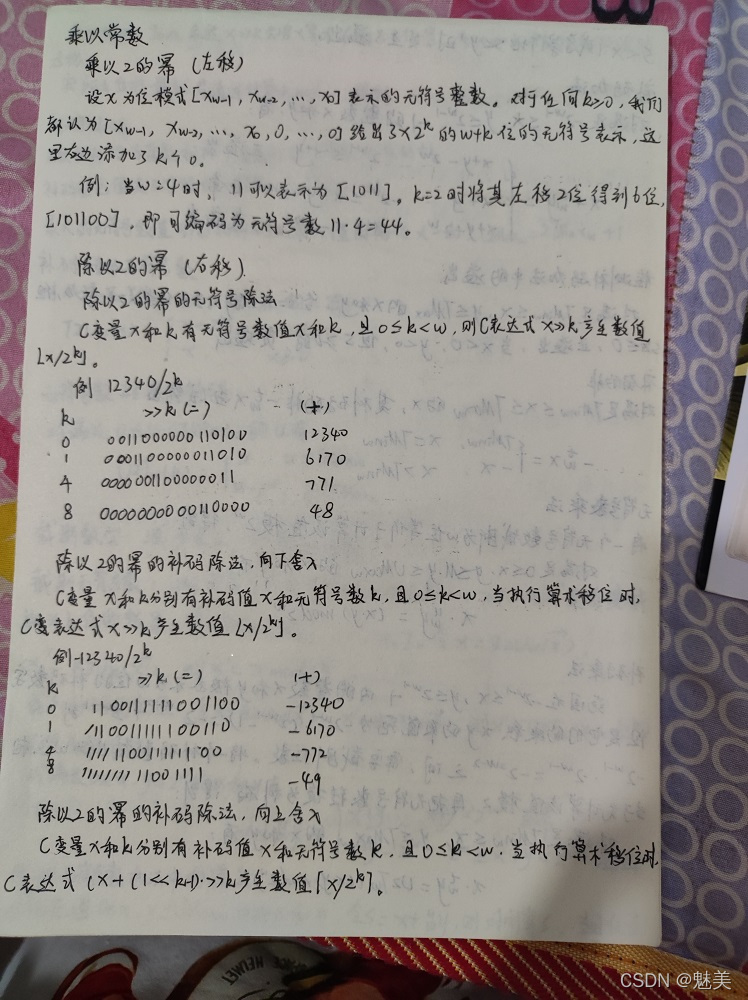 乘以常数
乘以2的幂 (左移)
设x为位模式[xw-1, xw-2, …, x0]表示的无符号整数。对于任何k≥0, 我们
都认为[xw-1, xw-2, …, x0, 0, …, 0]给出了x2^k的w+k位的无符号表示, 这
里右边添加了k个0。
例: 当w=4时, 11可以表示为[1011]。k=2时将其左移2位得到6位,
[101100], 即可编码为无符号数11·4=44。
除以2的幂 (右移).
除以2的幂的无符号除法
C变量x和k有无符号数值x和k, 且0≤k<w, 则C表达式x>>k产生数值
⌊x/2^k⌋。
例 12340/2^k
k >>k(二) (十)
0 0011000000110100 12340
1 0001100000011010 6170
4 0000001100000011 771
8 0000000000110000 48
除以2的幂的补码除法, 向下舍入
C变量x和k分别有补码值x和无符号数k, 且0≤k<w, 当执行算术移位时,
C变表达式x>>k产生数值⌊x/2^k⌋。
例-12340/2^k
k >>k(二) (十)
0 1100111111001100 -12340
1 -6170
4 -772
8 -49
除以2的幂的补码除法, 向上舍入
C变量x和k分别有补码值x和无符号数k, 且0≤k<w. 当执行算术移位时,
C表达式 (x+(1<<k-1)>>k产生数值⌈x/2^k⌉。
CSDN @魅美